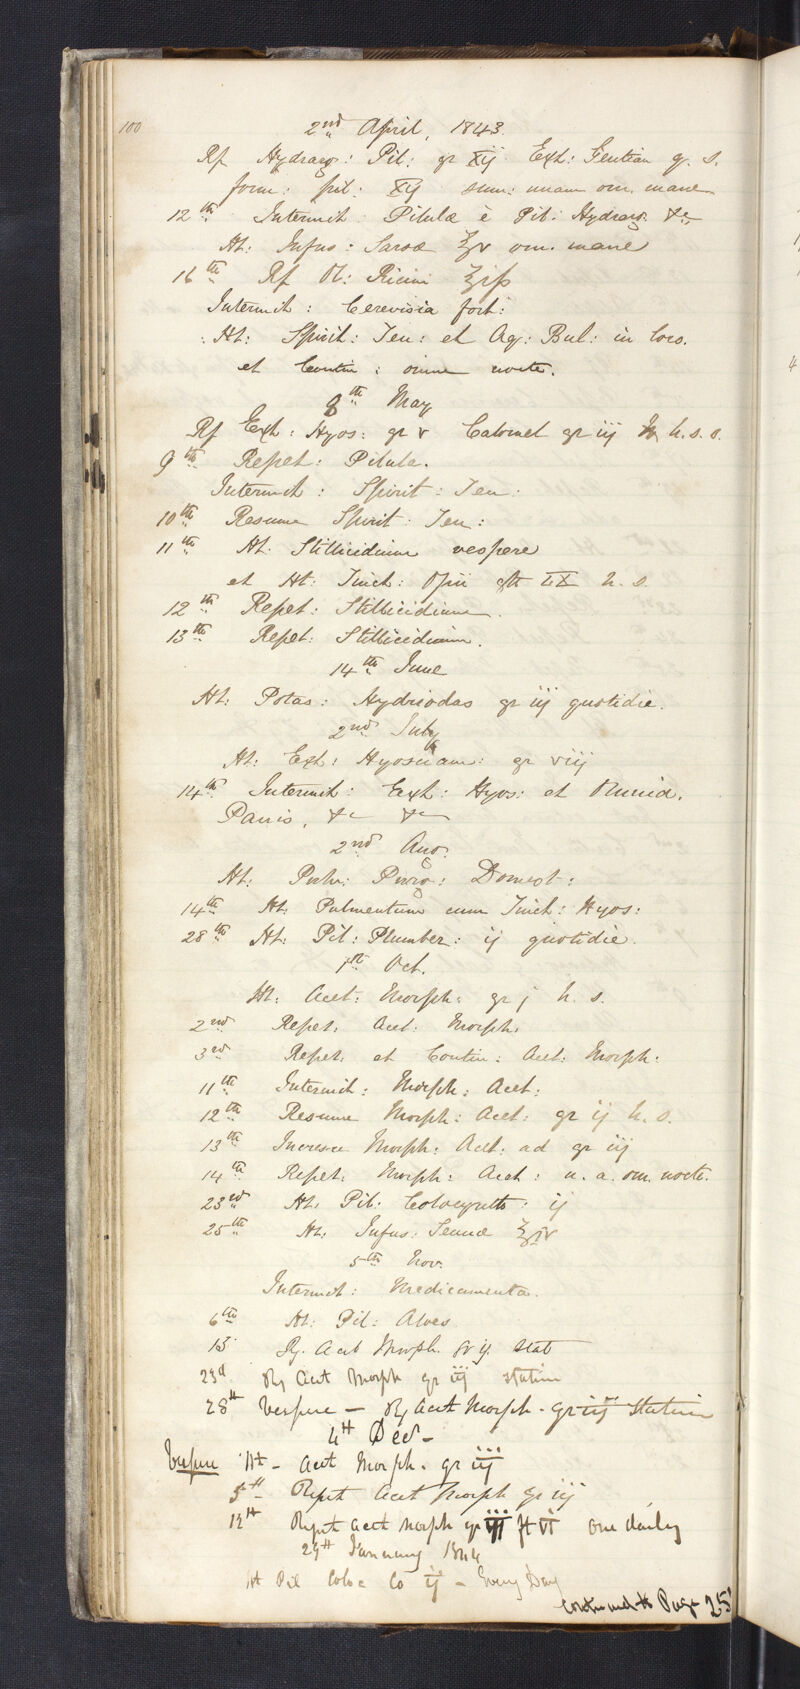 100
2nd April, 1843.
Rx Hydrarg: Pil: gr xij Ext: Gentian q. s.
form: pil: xij sum: unam om. mane
12th Intermit Pilulæ è Pil: Hydrarg. &c
Ht: Infus: Sarsæ ℥v om. mane
16th Rx Ol: Ricini ℥iſs
Intermit: Cerevisia fort:
Ht: Spirit: Ten: et Aq: Bul: in loco.
et Contin: omne nocte.
8th May
Rx Ext: Hyos: gr v Calomel gr iij h. s. s.
9th Repet: Pilula.
Intermit: Spirit: Ten:
10th Resume Spirit: Ten:
11th Ht: Stillicidium vespere
et Ht: Tinct: Opii gtt LX h. s.
12th Repet: Stillicidium.
13th Repet: Stillicidium.
14th June
Ht: Potas: Hydriodas gr iij quotidie.
2nd July
Ht: Ext: Hyosciam: gr viij
14th Intermit: Ext: Hyos: et
Panis, &c &c
2nd Aug.
Ht: Pulv: Purg: Domest:
14th Ht: Pulmentum cum Tinct: Hyos:
28th Ht: Pil: Plumber: ij quotidie.
1st Oct.
Ht: Acet: Morph: gr j h. s.
2nd Repet: Acet: Morph.
3rd Repet: et Contin: Acet: Morph:
11th Intermit: Morph: Acet:
12th Resume Morph: Acet: gr ij h. s.
13th Increase Morph: Acet: ad gr iij
14th Repet: Morph: Acet: u. a. om. nocte.
23rd Ht: Pil: Colocynth: ij
25th Ht: Infus: Sennæ ℥iv
5th Nov.
Intermit: Medicamenta.
6th Ht: Pil: Aloes
13 Rx. Acet Morph. gr ij stat
23d Rx Acet Morph gr iij statim
28th Vespere — Rx Acet Morph - gr iij statim
4th Decr -
Vespere Ht - Acet Morph. gr iij
5th - Repet Acet Morph gr iij
12th Repet Acet Morph gr iij ft vi one daily
29th January 1844
Ht Pil Coloc Co ij - Every Day
Continued to Page 25